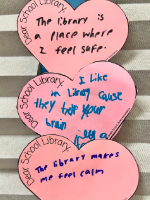 Dear School Library,
The library is
a place where
I feel safe.
Dear School Library,
I Like
Library Cause
they help your
brain
Dear School Library,
The library makes
me feel calm